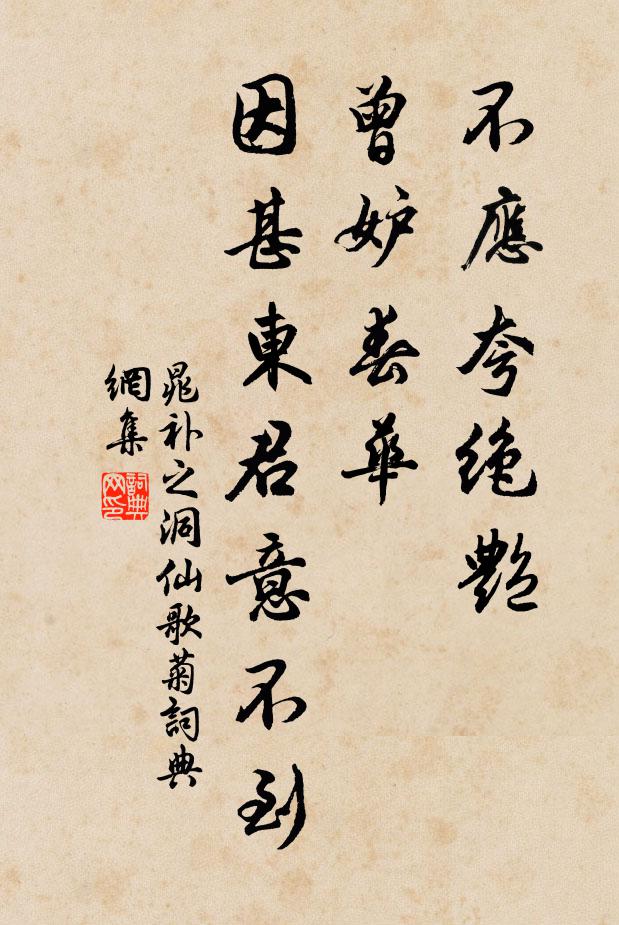 不應夸絶艷
曾妒春華
因甚東君意不到
晁补之洞仙歌菊詞典
網集
詞典
网印